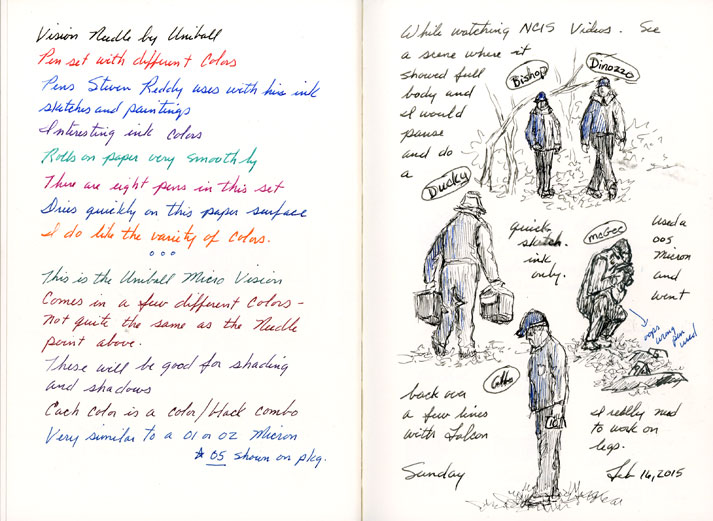 Vision Needle by Uniball
Pen set with different Colors
Pens Steven Reddy uses with his ink
sketches and paintings
Interesting ink Colors
Rolls on paper very smoothly
There are eight pens in this set
Dries quickly on this paper surface
I do like the variety of Colors.
This is the Uniball Micro Vision
Comes in a few different Colors –
not quite the same as the Needle
point above.
These will be good for shading
and shadows
Each color is a color/black combo
Very similar to a 01 or 02 Micron
* 05 shown on pkg.
While watching NCIS Videos. See
a scene where it
showed full
body and
I would
pause
and do
a
Bishop
Dinozzo
Ducky
quick
sketch.
ink
only.
McGee
Used a
005
Micron
and
went
oops
wrong
pen
used
Gibbs
back over
a few lines
with Falcon
I really need
to work on
legs.
Sunday
Feb 16, 2015